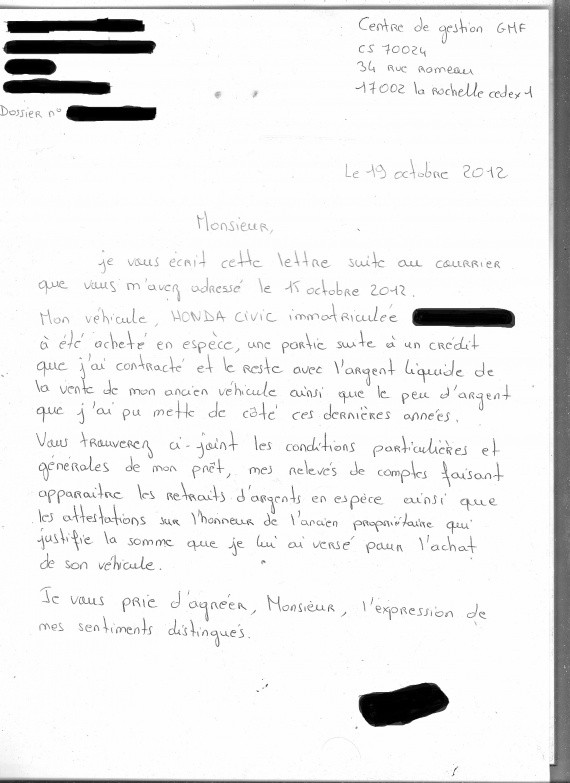 Centre de gestion GMF
CS 70024
34 rue Romeau
17002 la Rochelle cedex 1
Dossier n°
Le 19 octobre 2012
Monsieur,
je vous écrit cette lettre suite au courrier
que vous m'avez adressé le 15 octobre 2012.
Mon véhicule, HONDA CIVIC immatriculée
à été acheté en espèce, une partie suite à un crédit
que j'ai contracté et le reste avec l'argent liquide de
la vente de mon ancien véhicule ainsi que le peu d'argent
que j'ai pu mette de côté ces dernières années.
Vous trouverez ci-joint les conditions particulières et
générales de mon prêt, mes relevés de comptes faisant
apparaitre les retraits d'argents en espèce ainsi que
les attestations sur l'honneur de l'ancien propriétaire qui
justifie la somme que je lui ai versé pour l'achat
de son véhicule.
Je vous prie d'agréer, Monsieur, l'expression de
mes sentiments distingués.